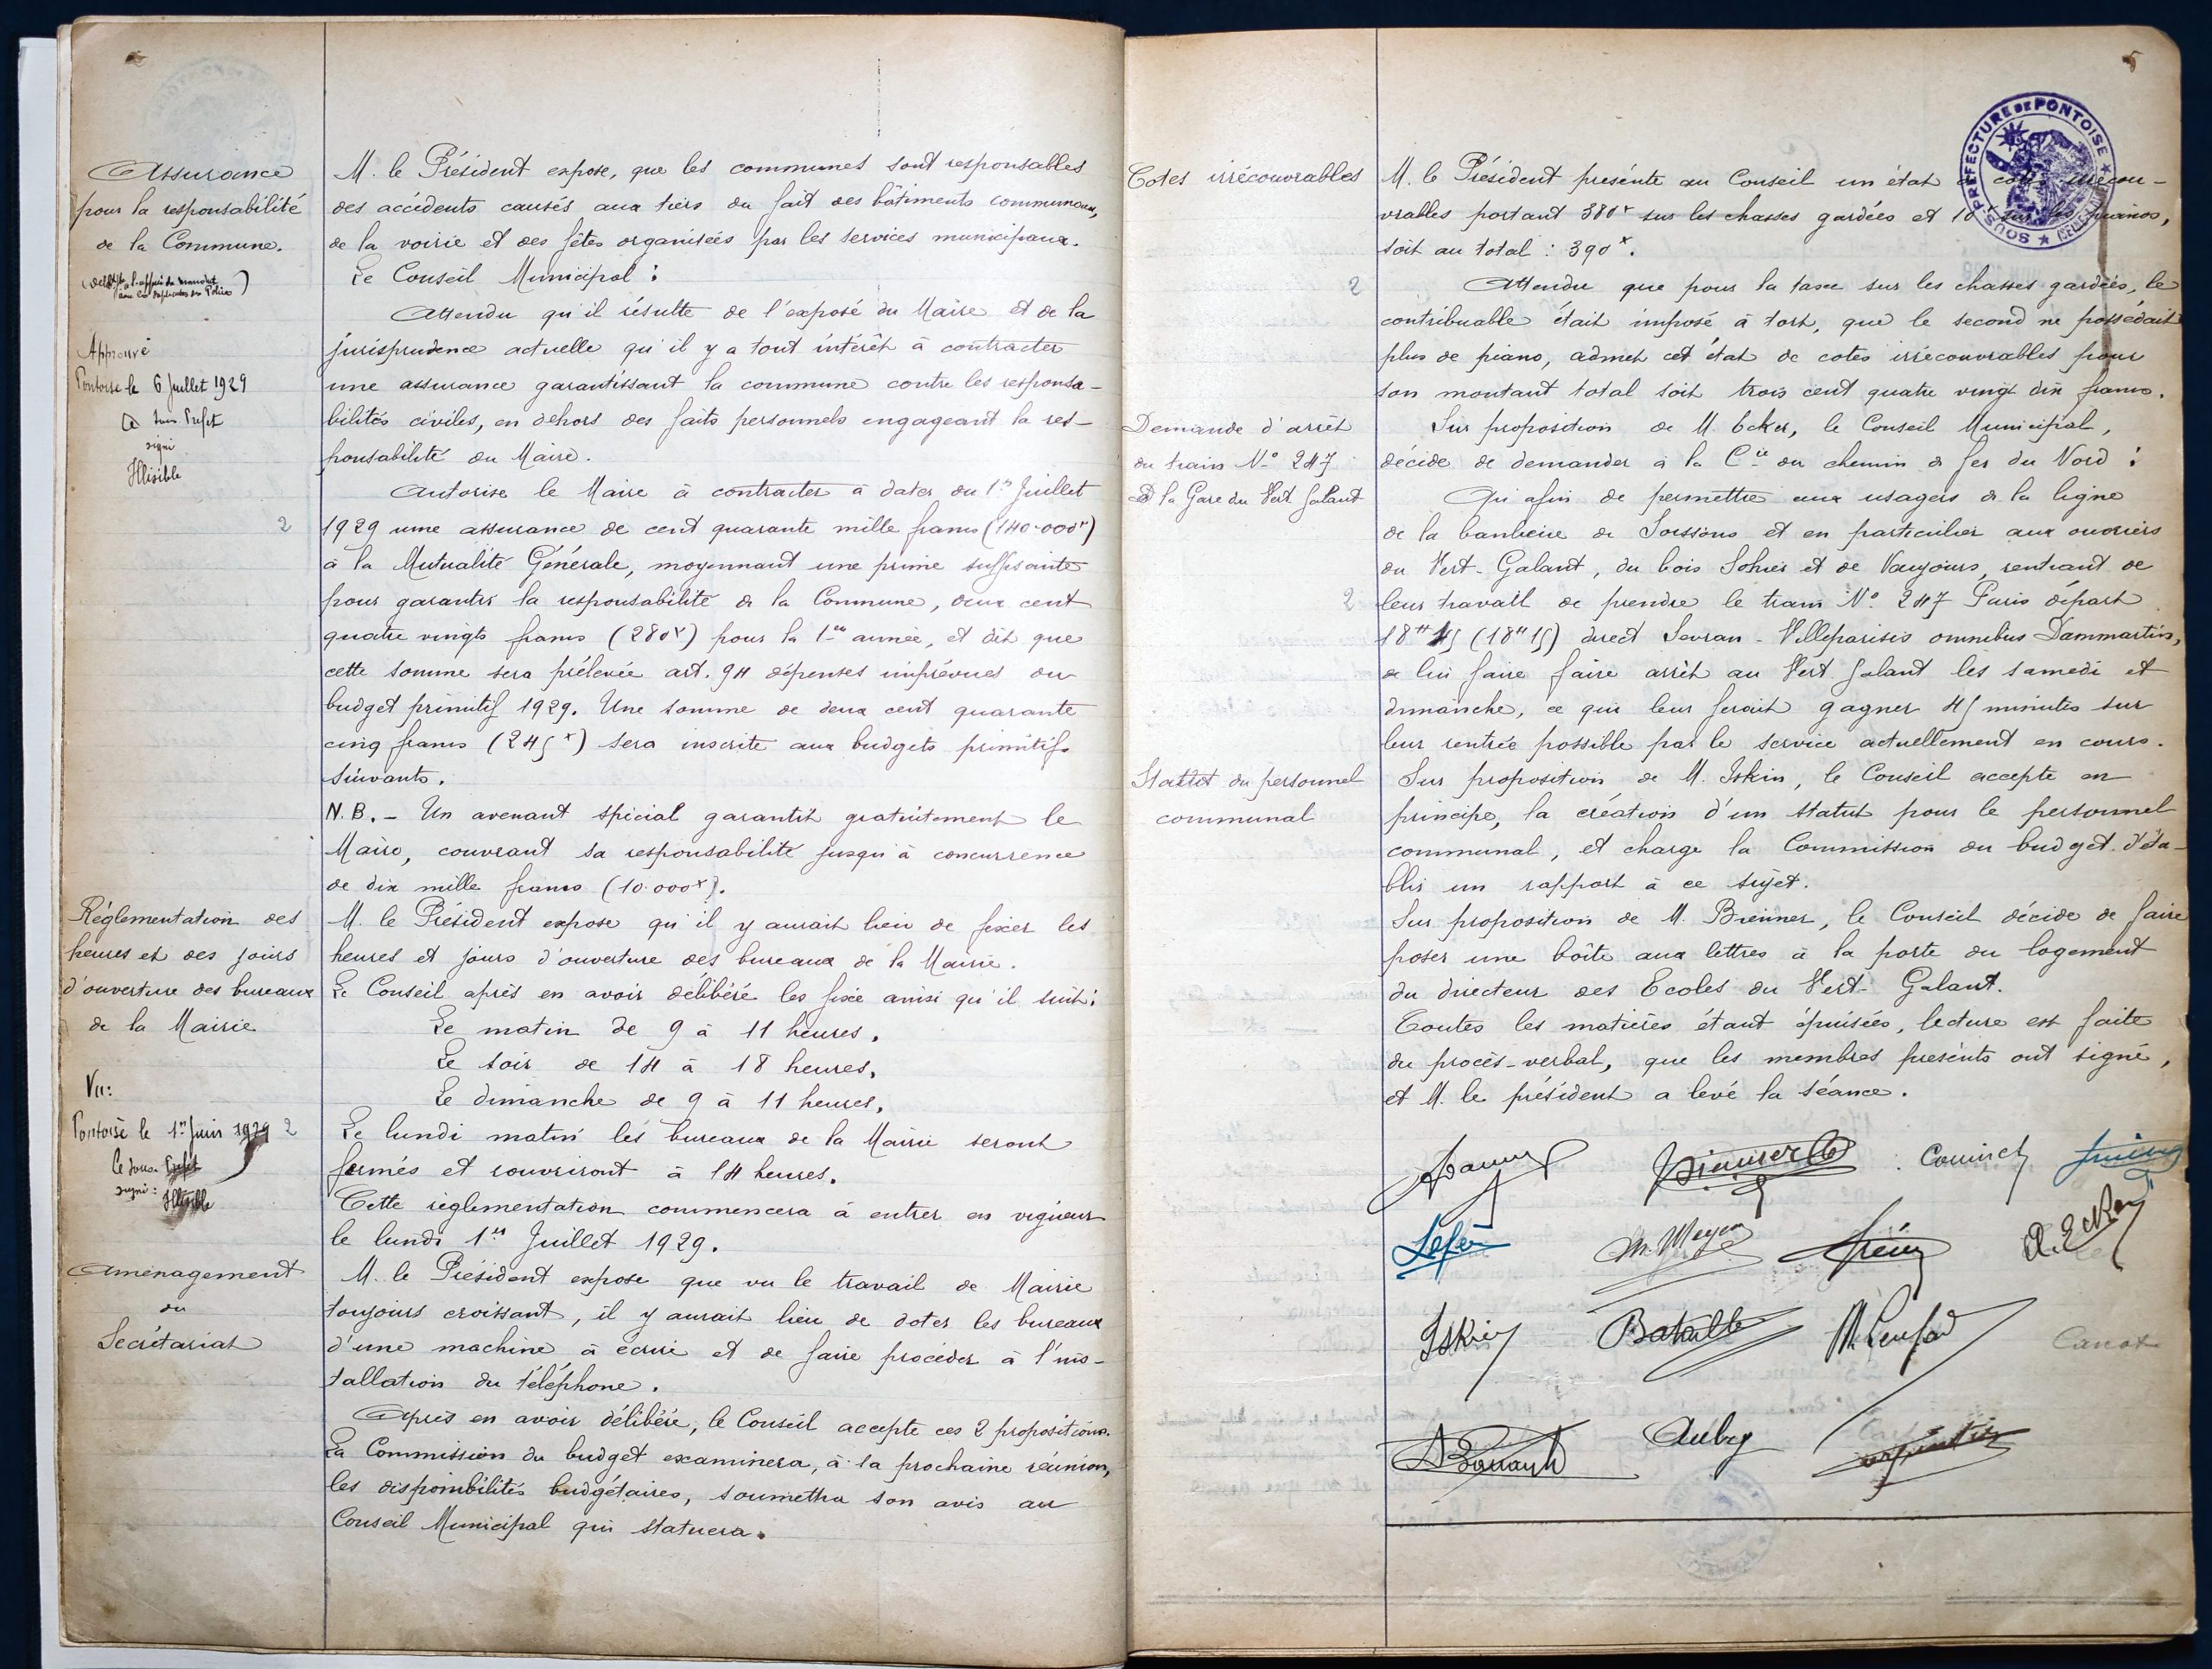 Assurance
pour la responsabilité
de la Commune.
Approuvé
Pontoise le 6 Juillet 1929
Sous Prefet
signé
Illisible
2
M. le Président expose, que les communes sont responsables
des accidents causés aux tiers du fait des bâtiments communaux,
de la voirie et des fêtes organisées par les services municipaux.
Le Conseil Municipal :
Attendu qu'il résulte de l'exposé du Maire et de la
jurisprudence actuelle qu'il y a tout intérêt à contracter
une assurance garantissant la commune contre les responsa-
bilités civiles, en dehors des faits personnels engageant la res-
ponsabilité du Maire.
Autorise le Maire à contracter à dater du 1er Juillet
1929 une assurance de cent quarante mille francs (140.000f)
à la Mutualité Générale, moyennant une prime suffisante
pour garantir la responsabilité de la Commune, deux cent
quatre vingts francs (280f) pour la 1ère année, et dit que
cette somme sera prélevée art. 94 dépenses imprévues du
budget primitif 1929. Une somme de deux cent quarante
cinq francs (245f) sera inscrite aux budgets primitifs
suivants.
N.B. - Un avenant spécial garantit gratuitement le
Maire, couvrant sa responsabilité jusqu'à concurrence
de dix mille francs (10.000f).
Réglementation des
heures et des jours
d'ouverture des bureaux
de la Mairie
Vu:
Pontoise le 1er Juin 1929 2
Le Sous-Préfet
signé:
Illisible
M. le Président expose qu'il y aurait lieu de fixer les
heures et jours d'ouverture des bureaux de la Mairie.
Le Conseil après en avoir délibéré les fixe ainsi qu'il suit:
Le matin de 9 à 11 heures.
Le soir de 14 à 18 heures.
Le dimanche de 9 à 11 heures.
Le lundi matin les bureaux de la Mairie seront
fermés et rouvriront à 14 heures.
Cette réglementation commencera à entrer en vigueur
le lundi 1er Juillet 1929.
Aménagement
du
Secrétariat
M. le Président expose que vu le travail de Mairie
toujours croissant, il y aurait lieu de doter les bureaux
d'une machine à écrire et de faire procéder à l'ins-
tallation du téléphone.
Après en avoir délibéré, le Conseil accepte ces 2 propositions.
La Commission du budget examinera, à la prochaine réunion,
les disponibilités budgétaires, soumettra son avis au
Conseil Municipal qui statuera.
5
SOUS-PRÉFECTURE DE PONTOISE
Cotes irrécouvrables
2
M. le Président présente au Conseil un état de cotes irrécou-
vrables portant 380f sur les chasses gardées et 10f sur les pianos,
soit au total : 390f.
Attendu que pour la taxe sur les chasses gardées, le
contribuable était imposé à tort, que le second ne possédait
plus de piano, admet cet état de cotes irrécouvrables pour
son montant total soit trois cent quatre vingt dix francs.
Demande d'arrêt
du train N° 247
à la Gare du Vert Galant
2
Sur proposition de M. Ecker, le Conseil Municipal,
décide de demander à la Cie du chemin de fer du Nord :
Qui afin de permettre aux usagers de la ligne
de la banlieue de Soissons et en particulier aux ouvriers
du Vert-Galant, du bois Sohier et de Vaujours, rentrant de
leur travail de prendre le train N° 247 Paris départ
18H 15 (18H15) direct Sevran-Villeparisis omnibus Dammartin,
de lui faire faire arrêt au Vert Galant les samedi et
dimanche, ce qui leur ferait gagner 45 minutes sur
leur rentrée possible par le service actuellement en cours.
Statut du personnel
communal
Sur proposition de M. Iskin, le Conseil accepte en
principe, la création d'un statut pour le personnel
communal, et charge la Commission du budget d'éta-
blir un rapport à ce sujet.
Sur proposition de M. Brenner, le Conseil décide de faire
poser une boîte aux lettres à la porte du logement
du directeur des Ecoles du Vert-Galant.
Toutes les matières étant épuisées, lecture est faite
du procès-verbal, que les membres présents ont signé,
et M. le président a levé la séance.
M. Meyer
A. Ecker
Iskin
Bataille
Canot
Aubry